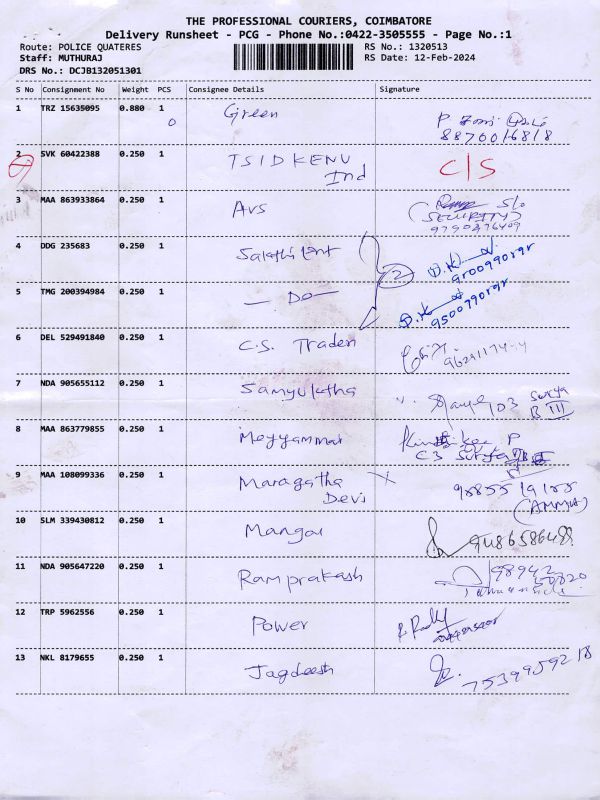 THE PROFESSIONAL COURIERS, COIMBATORE
Delivery Runsheet - PCG - Phone No.:0422-3505555 - Page No.:1
Route: POLICE QUATERES RS No.: 1320513
Staff: MUTHURAJ RS Date: 12-Feb-2024
DRS No.: DCJB132051301
S No Consignment No Weight PCS Consignee Details Signature
1 TRZ 15635095 0.880 1 Green
0 8870016818
2 SVK 60422388 0.250 1 TSIDKENU C/S
Ind
3 MAA 863933864 0.250 1 AVS S/o
(SECURITY)
9790276409
4 DDG 235683 0.250 1 Sakthi Ent 2
5 TMG 200394984 0.250 1 — Do —
6 DEL 529491840 0.250 1 C.S. Traders
7 NDA 905655112 0.250 1 Samyuktha 903 Surya
B III
8 MAA 863779855 0.250 1 Meyyammai P
C3 Surya
9 MAA 108099336 0.250 1 Maragatha X
Devi (AMMA)
10 SLM 339430812 0.250 1 Mangai
11 NDA 905647220 0.250 1 Ramprakash 98942
50820
12 TRP 5962556 0.250 1 Power
13 NKL 8179655 0.250 1 Jagdeesh 7539959218